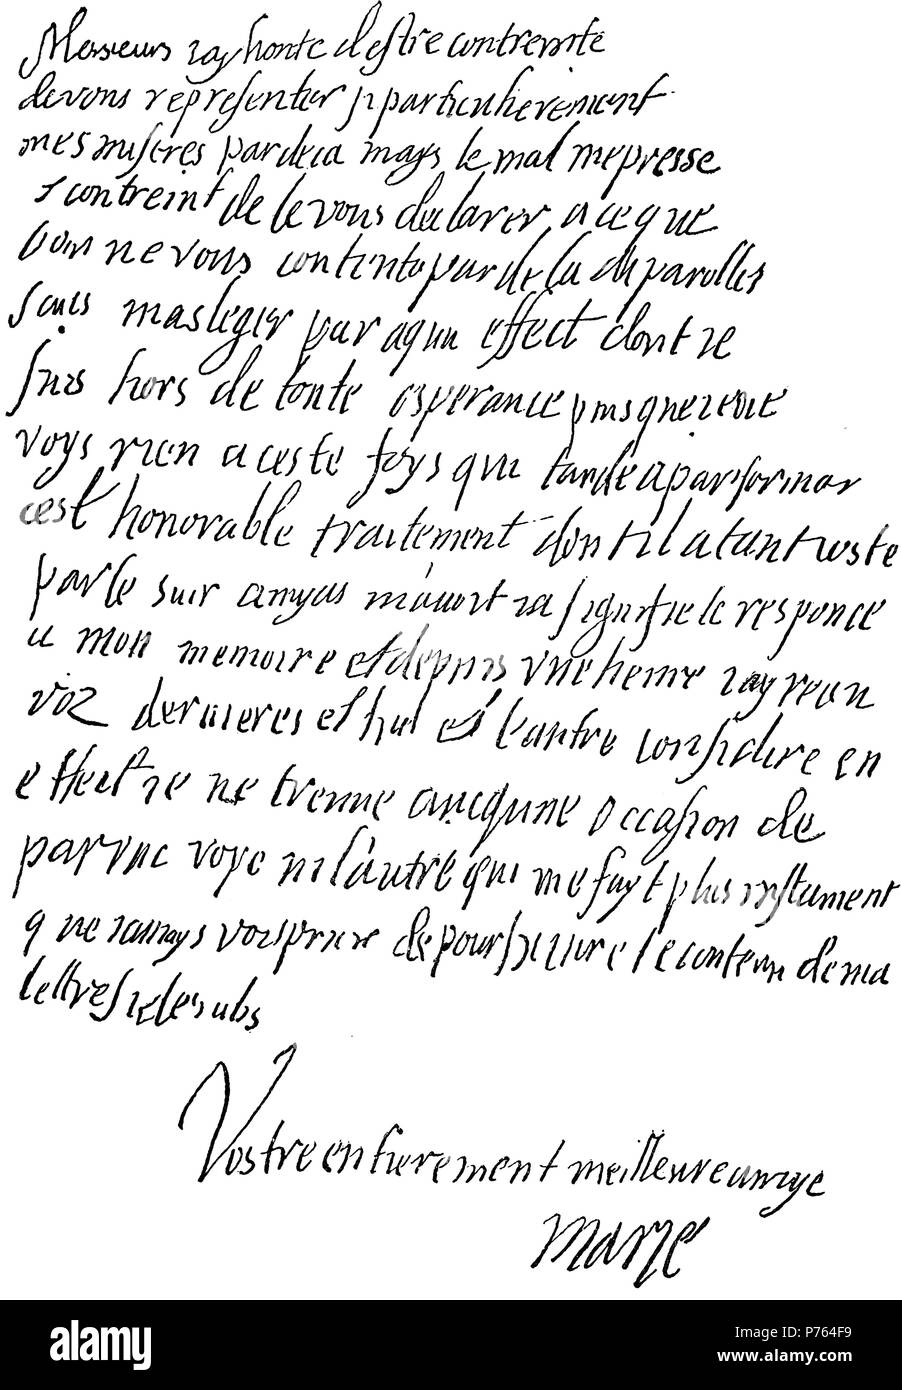 Messieurs jay honte destre contreinte
devous representer si particulierement
mes miseres pardeca mays le mal me presse
s contreint de le vous declarer a ce que
lon ne vous contente par de la de parolles
sans masleger par aqun effect dont je
suis hors de toute esperance puis que je ne
voys rien a ceste foys qui tande a parformer
cest honorable traitement dont il a tant
par le sieur amyas signifie le responce
a mon memoire et depuis une heure jay receu
voz dernieres et lun et lautre considire en
effect je ne treuve aucqune occasion de
ni lautre qui me fayt plus instament
que jamays vous prier de poursuivre le contenu de ma
lettre
Vostre entierement meilleure amye
Marie
alamy
Image ID: P764F9
www.alamy.com